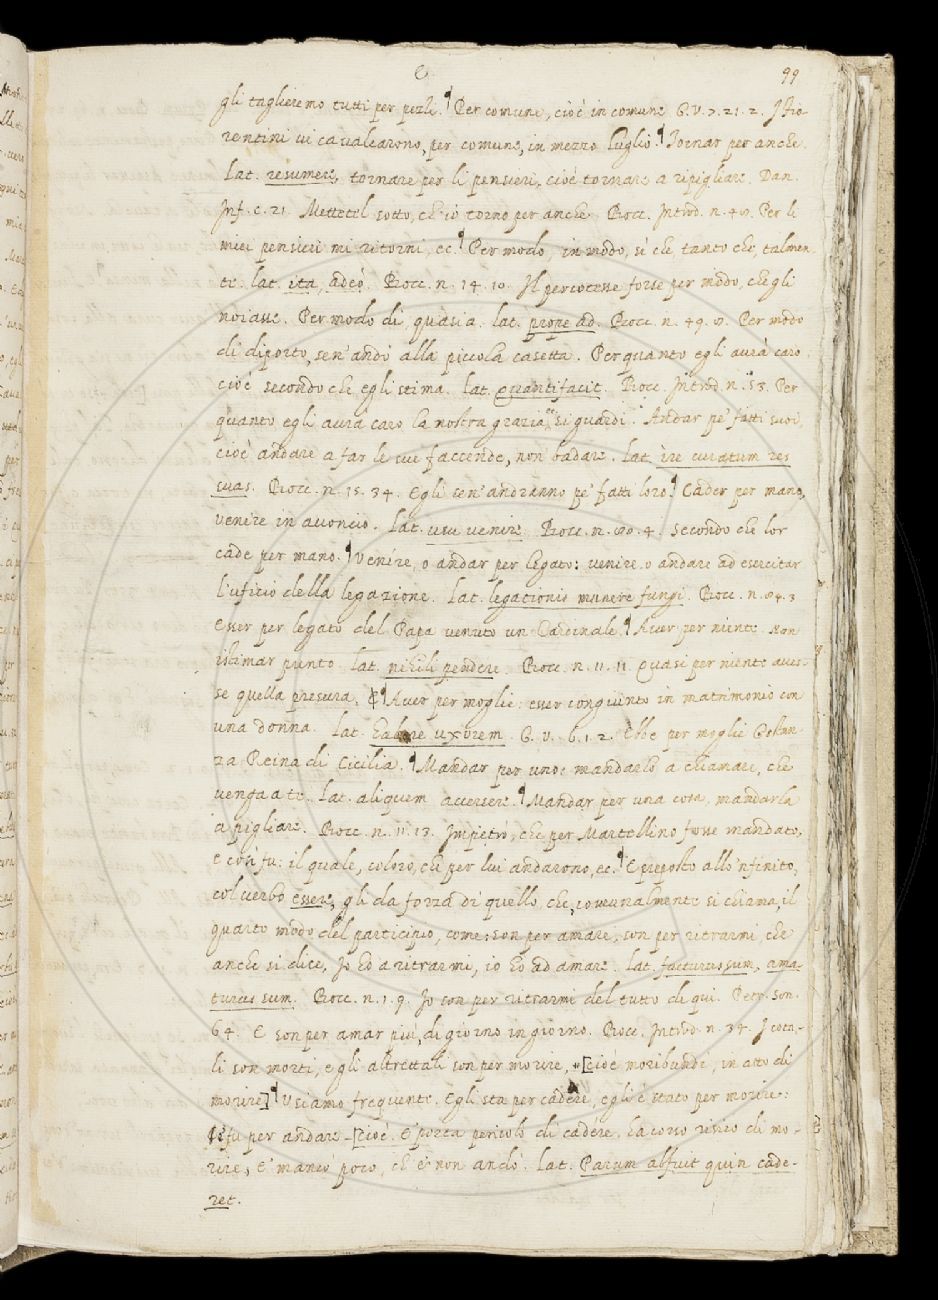 C 99
gli taglieremo tutti per pezli. ¶ Per comune, cioè in comune G. V. 7. 21. 2. I Fio-
rentini vi cavalcarono, per comune, in mezzo Luglio. ¶ Tornar per anche.
Lat. resumere, tornare per li pensieri, cioè tornare a ripigliare. Dan.
Inf. c. 21. Mettetel sotto, ch'io torno per anche Bocc. Introd. n. 48. Per li
miei pensieri mi ritorni, ec. ¶ Per modo, in modo, sì che, tanto che, talmen-
te. lat. ita, adeò. Bocc. n. 14. 10. Il percotesse forse per modo, che gli
noiasse. Per modo di, quasi a. lat. prope ad. Bocc. n. 49. 8. Per modo
di diporto, sen' andò alla piccola casetta. Per quanto egli avrà caro,
cioè secondo che egli stima. lat. Quanti facit. Bocc. Introd. n. 53. Per
quanto egli avrà caro la nostra grazia, si guardi. Andar pe' fatti suoi,
cioè andare a far le sue faccende, non badare. Lat. ire curatum res
suas. Bocc. n. 15. 34. Egli sen' andranno pe' fatti loro. ¶ Cader per mano,
venire in acconcio. Lat. usu venire Bocc. n. 80. 4. Secondo che lor
cade per mano. ¶ Venire, o andar per legato: venire o andare ad esercitar
l'uficio della legazione. Lat. legationis munere fungi. Bocc. n. 84. 3
Esser per legato del Papa venuto un Cardinale. ¶ Aver per niente. Non
istimar punto. Lat. nihili pendere. Bocc. n. 11. 11 Quasi per niente aves-
se quella presura. ¶ Aver per moglie: esser congiunto in matrimonio con
una donna. Lat. habere uxorem. G. V. 6. 1. 2. Ebbe per moglie Gostan-
za Reina di Cicilia. ¶ Mandar per uno: mandarlo a chiamare, che
venga a te. Lat. aliquem accersere. ¶ Mandar per una cosa, mandarla
a pigliare. Bocc. n. 11. 13. Impetrò, che per Martellino fosse mandato,
e così fu: il quale, coloro, che per lui andarono, ec. ¶ E preposto all'infinito,
col verbo essere, gli da forza di quello, che, comunalmente si chiama, il
quarto modo del participio, come: son per amare, son per ritrarmi, che
anche si dice, Io ho a ritrarmi, io ho ad amare. Lat. facturus sum, ama-
turus sum. Bocc. n. 1. 9. Io son per ritrarmi del tutto di qui. Petr. Son.
64. E son per amar più, di giorno in giorno. Bocc. Introd. n. 34. I cota-
li son morti, e gli altrettali son per morire, [cioè moribundi, in atto di
morire] ¶ Usiamo frequente. Egli sta per cadere, egli è stato per morire:
fu per andare [cioè. E' porta pericolo di cadere, ha corso risico di mo-
rire, e' mancò poco, ch'e' non andò. Lat. Parum abfuit quin cade-
ret.